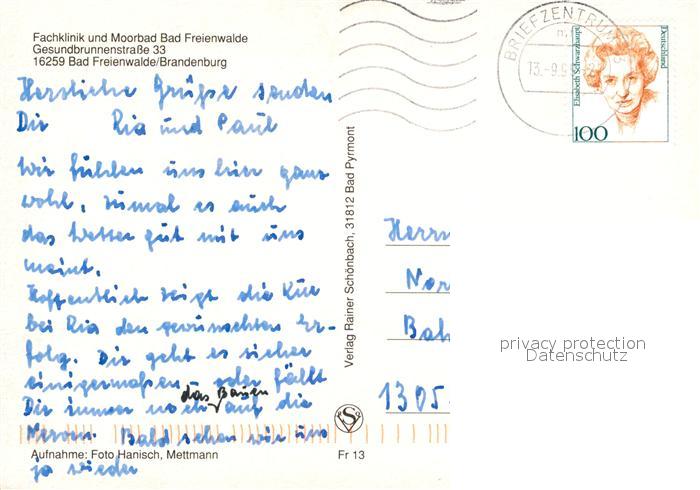 Fachklinik und Moorbad Bad Freienwalde
Gesundbrunnenstraße 33
16259 Bad Freienwalde/Brandenburg
Herzliche Grüße senden
Dir Ria und Paul
Wir fühlen uns hier ganz
wohl, zumal es auch
das Wetter gut mit uns
meint.
Hoffentlich zeigt die Kur
bei Ria den gewünschten Er-
folg. Dir geht es sicher
einigermaßen, oder fällt
das Bauen
Dir immer noch auf die
Nerven. Bald sehen wir uns
ja wieder
Aufnahme: Foto Hanisch, Mettmann
Fr 13
Verlag Rainer Schönbach, 31812 Bad Pyrmont
S
BRIEFZENTRUM
13.-9.9
Elisabeth Schwarzhaupt
Deutschland
100
Herrn
Nor
Bah
1305
privacy protection
Datenschutz